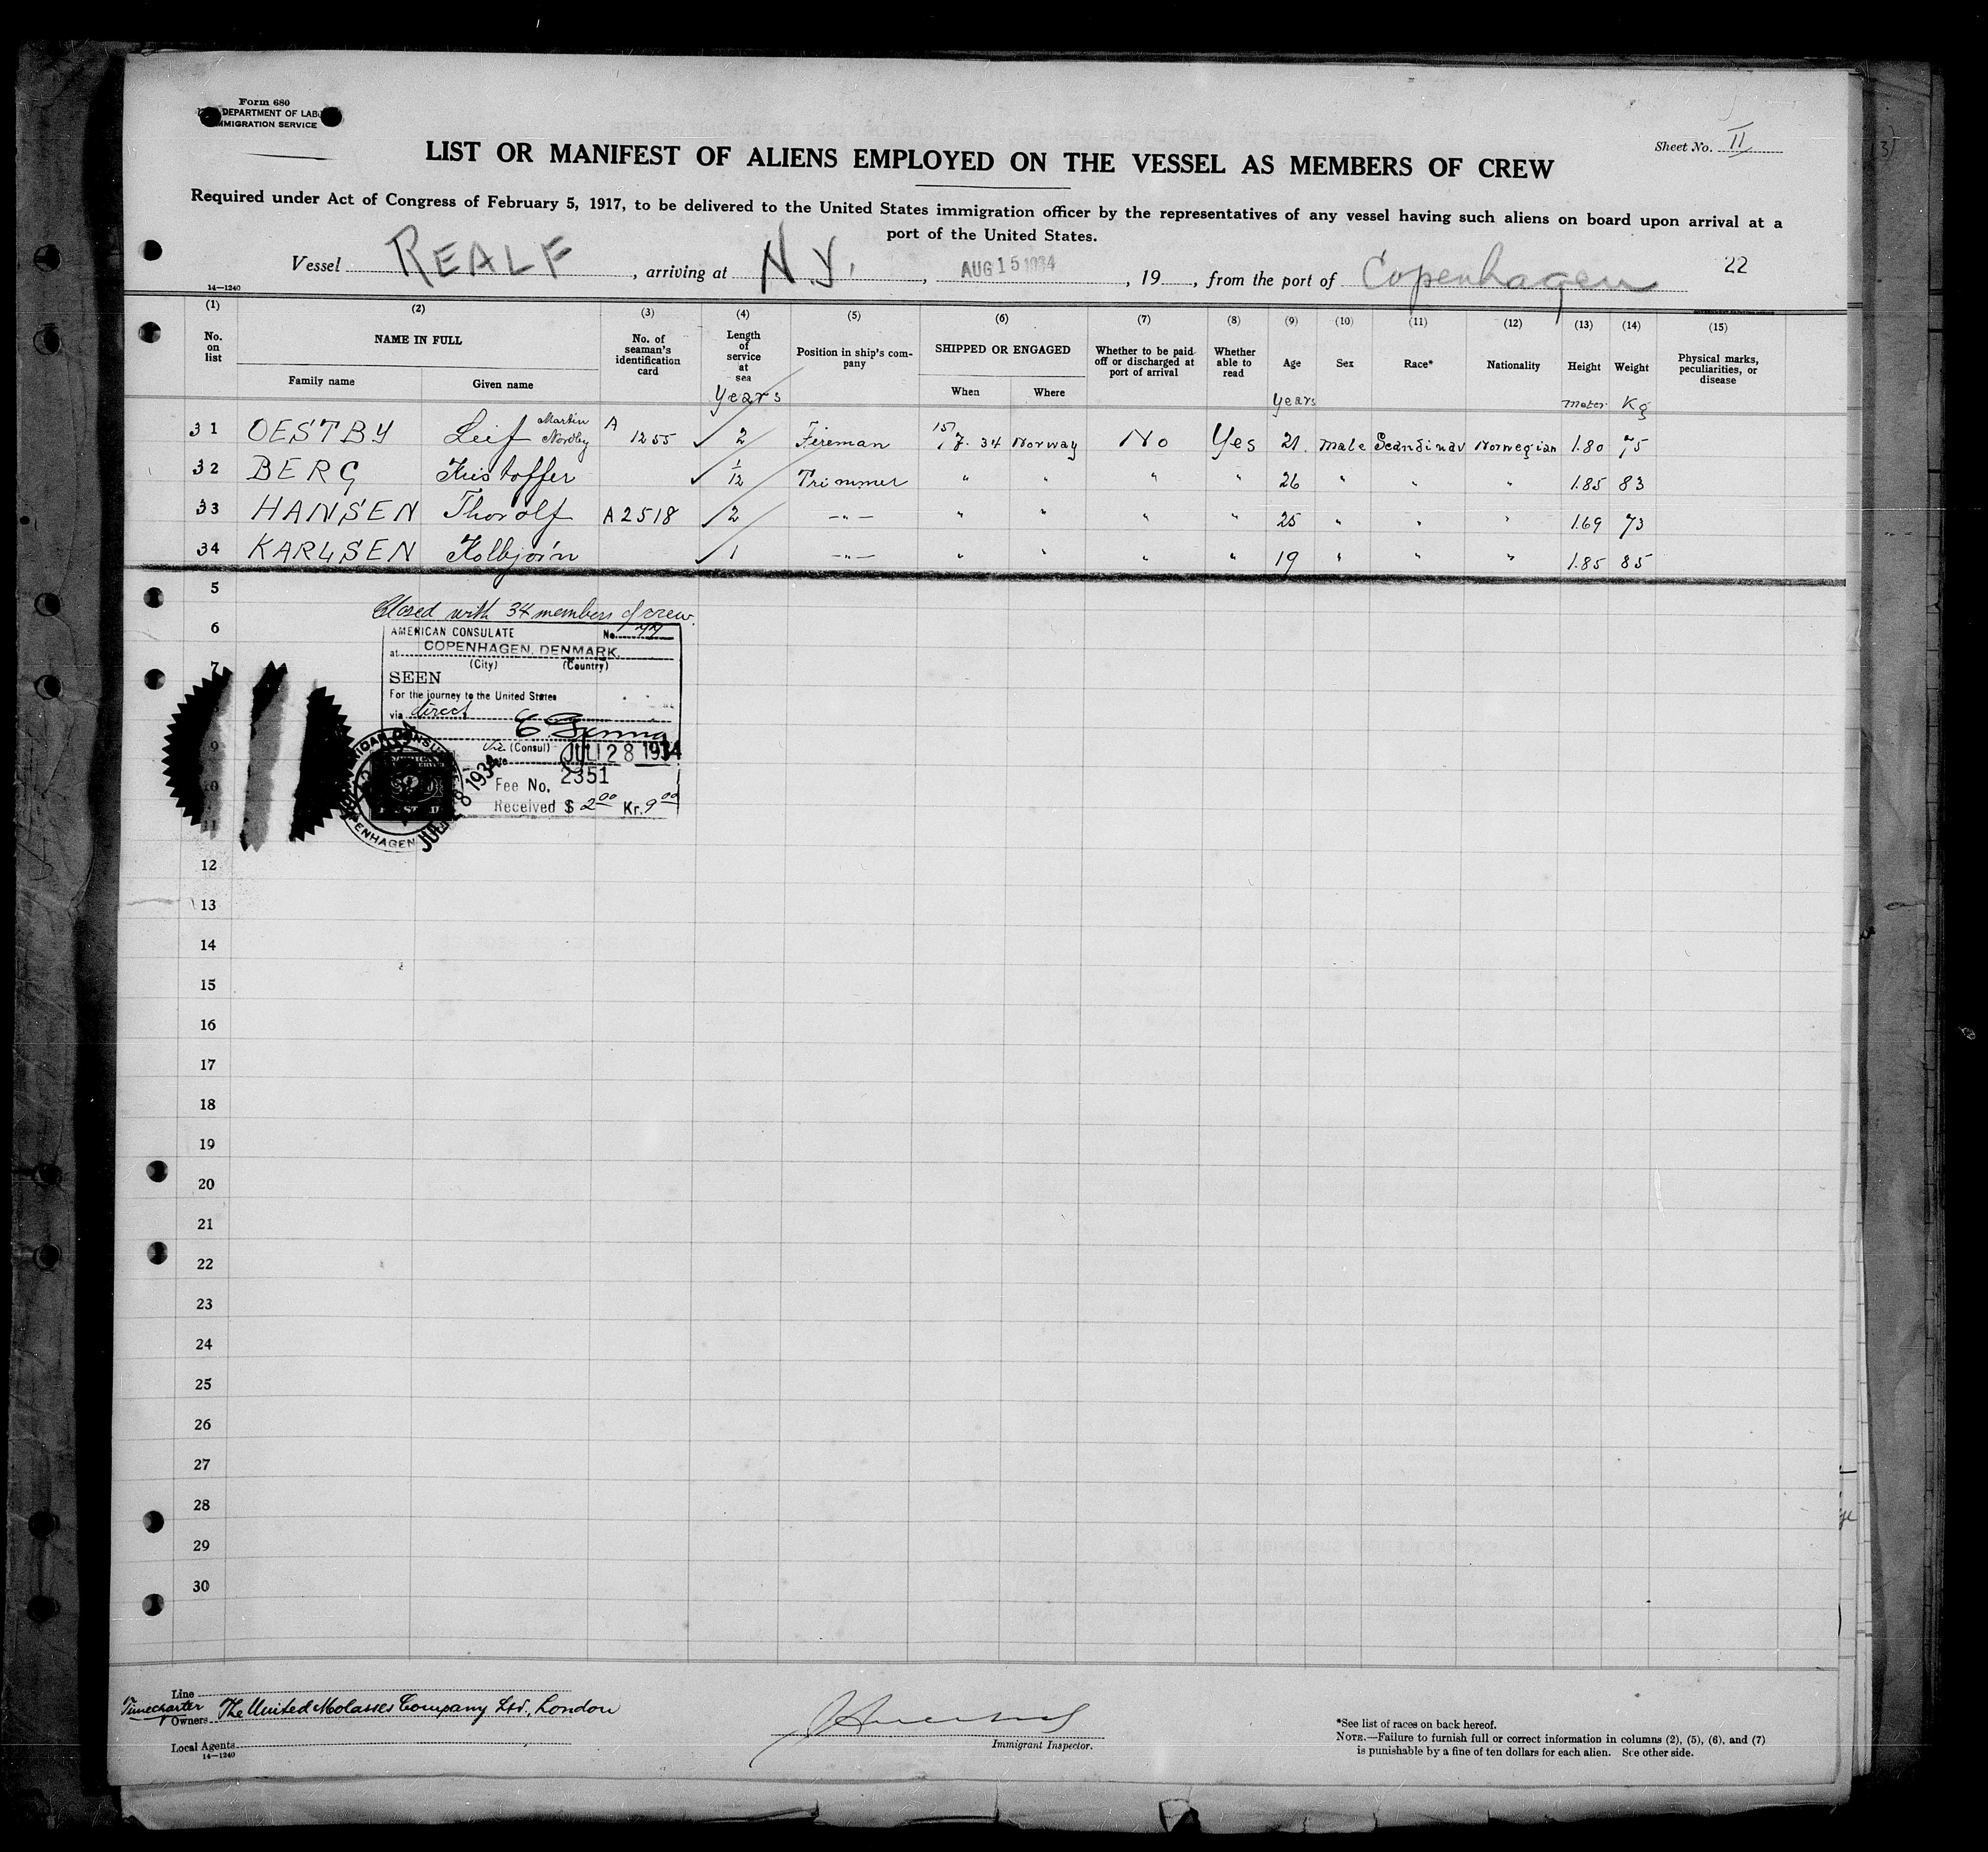 Form 680
DEPARTMENT OF LAB
MMIGRATION SERVICE
Sheet No. II
LIST OR MANIFEST OF ALIENS EMPLOYED ON THE VESSEL AS MEMBERS OF CREW
Required under Act of Congress of February 5, 1917, to be delivered to the United States immigration officer by the representatives of any vessel having such aliens on board upon arrival at a
port of the United States.
Vessel REALF, arriving at N.Y., AUG 15 1934, 19, from the port of Copenhagen 22
14—1240
(1) (2) (3) (4) (5) (6) (7) (8) (9) (10) (11) (12) (13) (14) (15)
No. on list
NAME IN FULL
Family name Given name
No. of seaman's identification card
Length of service at sea
Years
Position in ship's company
SHIPPED OR ENGAGED
When Where
Whether to be paid off or discharged at port of arrival
Whether able to read
Age
Years
Sex
Race*
Nationality
Height
meter
Weight
Kg
Physical marks, peculiarities, or disease
31 OESTBY Leif Martin Nordby A 1255 2 Fireman 15/7. 34 Norway No Yes 21. male Scandinav Norwegian 1.80 75
32 BERG Kristoffer 1/12 Trimmer " " " " 26 " " " 1.85 83
33 HANSEN Thorolf A 2518 2 —"— " " " " 25 " " " 1.69 73
34 KARLSEN Kolbjørn 1 —"— " " " " 19 " " " 1.85 85
5
Closed with 34 members of crew.
6
AMERICAN CONSULATE No. 77
at COPENHAGEN, DENMARK.
(City) (Country)
7
SEEN
For the journey to the United States
via direct
9
Vice (Consul) JUL 28 1934
10
Fee No. 2351
Received $ 2.00 Kr. 9.00
11
12
13
14
15
16
17
18
19
20
21
22
23
24
25
26
27
28
29
30
Line
Timecharter Owners The United Molasses Company Ltd., London
Local Agents
14—1240
Immigrant Inspector.
*See list of races on back hereof.
NOTE.—Failure to furnish full or correct information in columns (2), (5), (6), and (7)
is punishable by a fine of ten dollars for each alien. See other side.